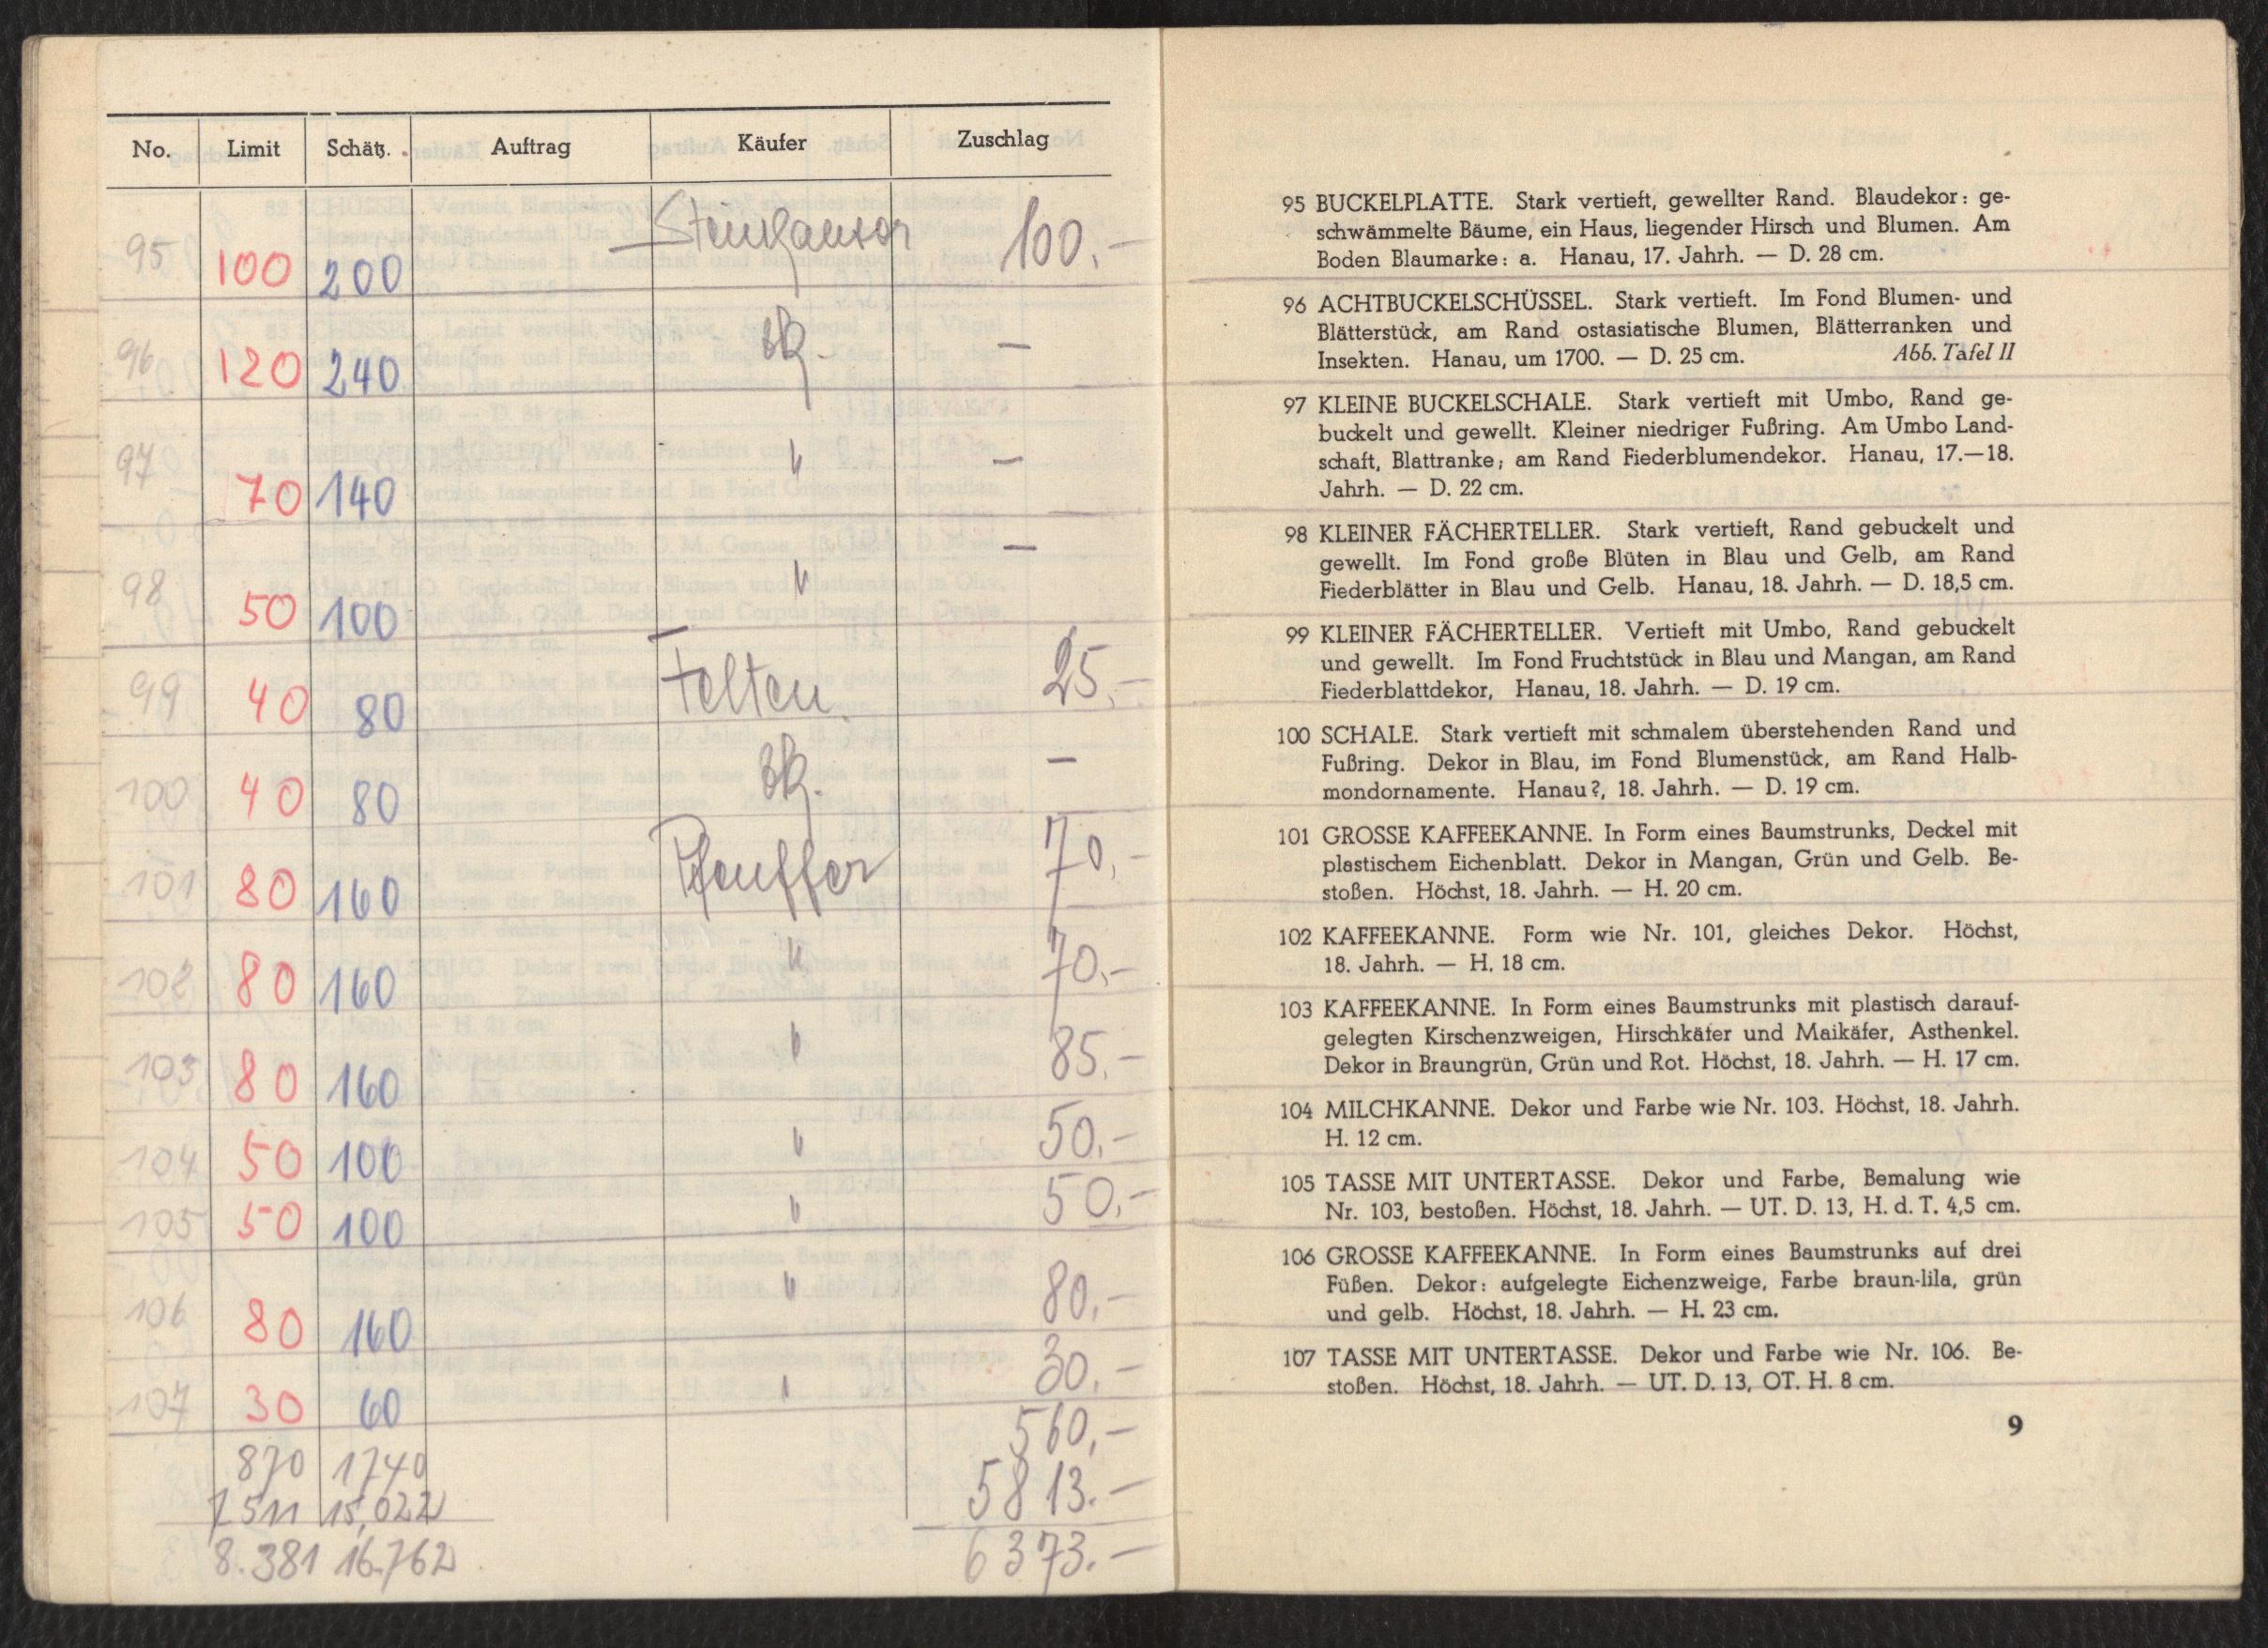 No. Limit Schätz. Auftrag Käufer Zuschlag
95 100 200 100.-
96 120 240 -
97 70 140 " -
98 50 100 " -
99 40 80 Felten 25.-
100 40 80 -
101 80 160 Pfeuffer 70.-
102 80 160 " 70.-
103 80 160 " 85.-
104 50 100 " 50.-
105 50 100 " 50.-
106 80 160 " 80.-
107 30 60 " 30.-
870 1740 560.-
7511 15,022 5813.-
8.381 16.762 6373.-
95 BUCKELPLATTE. Stark vertieft, gewellter Rand. Blaudekor: ge-
schwämmelte Bäume, ein Haus, liegender Hirsch und Blumen. Am
Boden Blaumarke: a. Hanau, 17. Jahrh. — D. 28 cm.
96 ACHTBUCKELSCHÜSSEL. Stark vertieft. Im Fond Blumen- und
Blätterstück, am Rand ostasiatische Blumen, Blätterranken und
Insekten. Hanau, um 1700. — D. 25 cm. Abb. Tafel II
97 KLEINE BUCKELSCHALE. Stark vertieft mit Umbo, Rand ge-
buckelt und gewellt. Kleiner niedriger Fußring. Am Umbo Land-
schaft, Blattranke; am Rand Fiederblumendekor. Hanau, 17.—18.
Jahrh. — D. 22 cm.
98 KLEINER FÄCHERTELLER. Stark vertieft, Rand gebuckelt und
gewellt. Im Fond große Blüten in Blau und Gelb, am Rand
Fiederblätter in Blau und Gelb. Hanau, 18. Jahrh. — D. 18,5 cm.
99 KLEINER FÄCHERTELLER. Vertieft mit Umbo, Rand gebuckelt
und gewellt. Im Fond Fruchtstück in Blau und Mangan, am Rand
Fiederblattdekor, Hanau, 18. Jahrh. — D. 19 cm.
100 SCHALE. Stark vertieft mit schmalem überstehenden Rand und
Fußring. Dekor in Blau, im Fond Blumenstück, am Rand Halb-
mondornamente. Hanau?, 18. Jahrh. — D. 19 cm.
101 GROSSE KAFFEEKANNE. In Form eines Baumstrunks, Deckel mit
plastischem Eichenblatt. Dekor in Mangan, Grün und Gelb. Be-
stoßen. Höchst, 18. Jahrh. — H. 20 cm.
102 KAFFEEKANNE. Form wie Nr. 101, gleiches Dekor. Höchst,
18. Jahrh. — H. 18 cm.
103 KAFFEEKANNE. In Form eines Baumstrunks mit plastisch darauf-
gelegten Kirschenzweigen, Hirschkäfer und Maikäfer, Asthenkel.
Dekor in Braungrün, Grün und Rot. Höchst, 18. Jahrh. — H. 17 cm.
104 MILCHKANNE. Dekor und Farbe wie Nr. 103. Höchst, 18. Jahrh.
H. 12 cm.
105 TASSE MIT UNTERTASSE. Dekor und Farbe, Bemalung wie
Nr. 103, bestoßen. Höchst, 18. Jahrh. — UT. D. 13, H. d. T. 4,5 cm.
106 GROSSE KAFFEEKANNE. In Form eines Baumstrunks auf drei
Füßen. Dekor: aufgelegte Eichenzweige, Farbe braun-lila, grün
und gelb. Höchst, 18. Jahrh. — H. 23 cm.
107 TASSE MIT UNTERTASSE. Dekor und Farbe wie Nr. 106. Be-
stoßen. Höchst, 18. Jahrh. — UT. D. 13, OT. H. 8 cm.
9